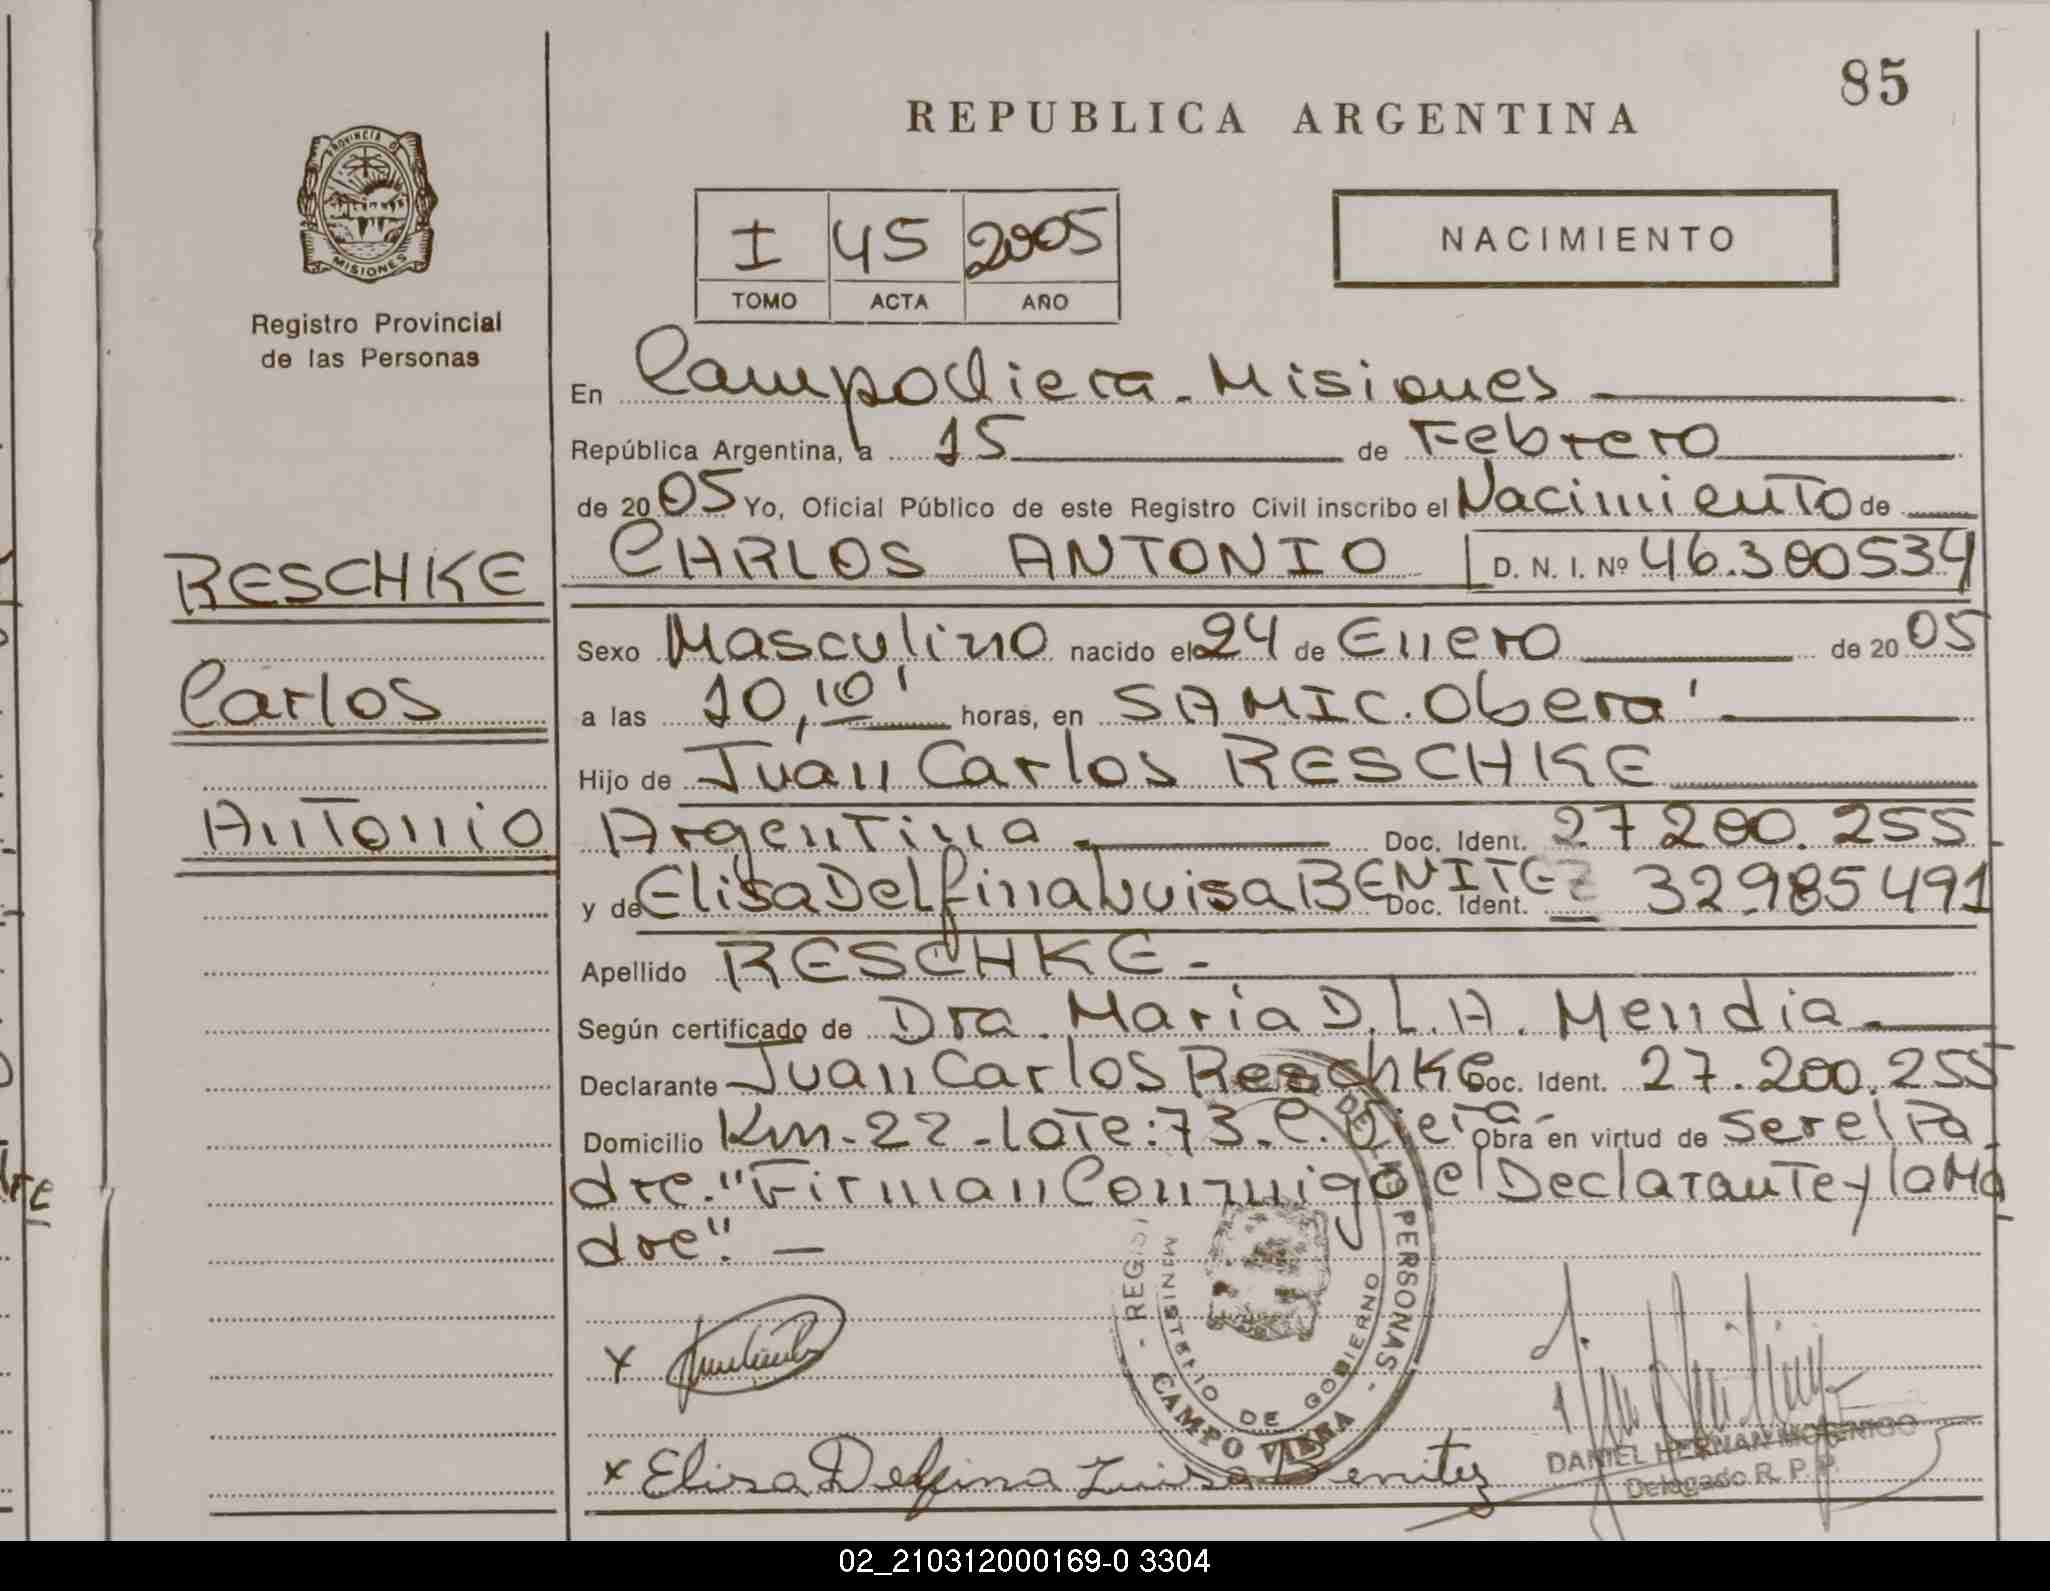 85
REPUBLICA ARGENTINA
PROVINCIA DE
MISIONES
Registro Provincial
de las Personas
I 45 2005
TOMO ACTA AÑO
NACIMIENTO
En Campo Viera - Misiones
República Argentina, a 15 de Febrero
de 2005 Yo, Oficial Público de este Registro Civil inscribo el Nacimiento de
RESCHKE
Carlos
Antonio
CARLOS ANTONIO D. N. I. Nº 46.300534
Sexo Masculino nacido el 24 de Enero de 2005
a las 10,10' horas, en SAMIC. Oberá
Hijo de Juan Carlos RESCHKE
Argentina Doc. Ident. 27200.255
y de Elisa Delfina Luisa BENITEZ Doc. Ident. 32985491
Apellido RESCHKE.-
Según certificado de Dra. María D.L.A. Mendia.
Declarante Juan Carlos Reschke Doc. Ident. 27.200.255
Domicilio Km-22-lote:73-C. Viera- Obra en virtud de ser el Pa
dre. "Firman Conmigo el Declarante y la Ma
dre". —
REGIST DE LAS PERSONAS
MINISTERIO DE GOBIERNO
CAMPO VIERA
x
x Elisa Delfina Luisa Benitez
DANIEL HERNAN MOCENIGO
Delegado R. P. P.
02_210312000169-0 3304